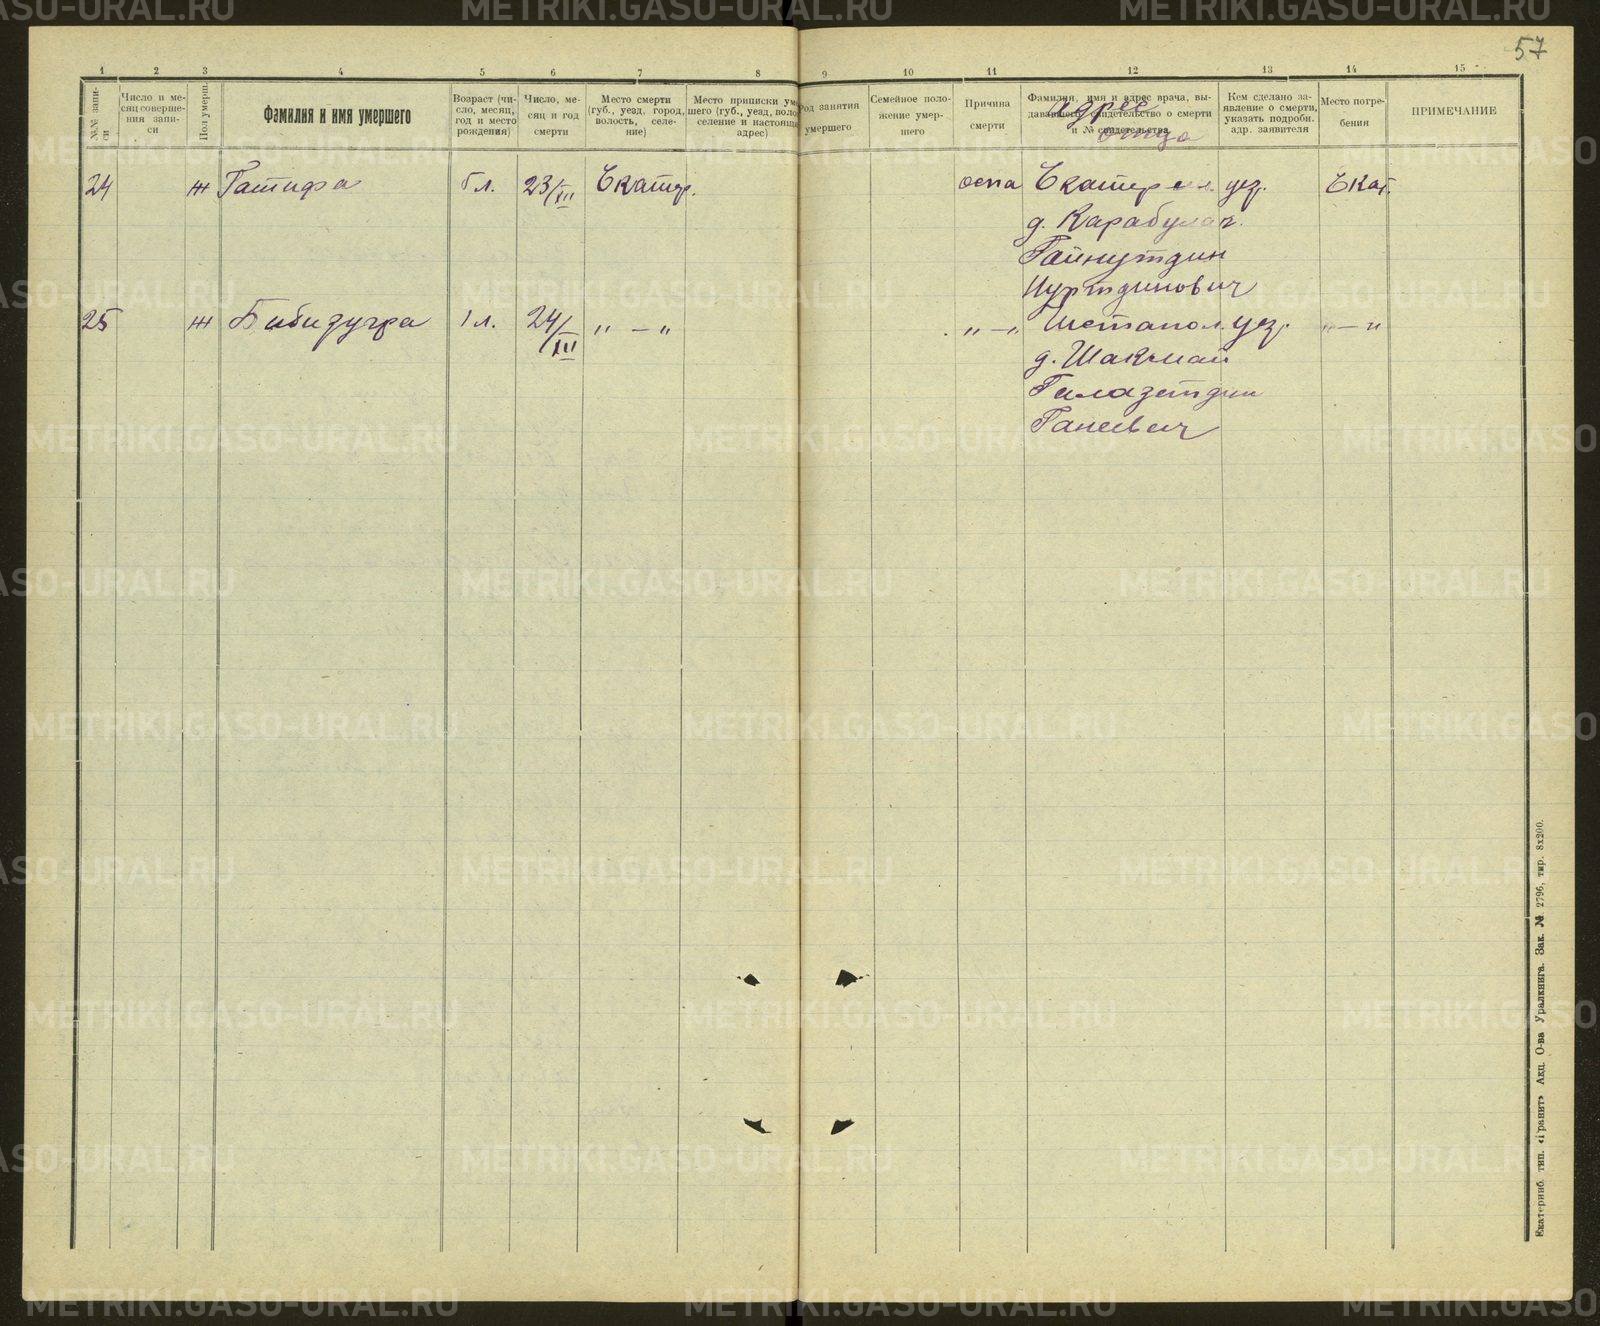 57
1 2 3 4 5 6 7 8 9 10 11 12 13 14 15
№№ записи
Число и месяц совершения записи
Пол умерш.
Фамилия и имя умершего
Возраст (число, месяц, год и место рождения)
Число, месяц и год смерти
Место смерти (губ., уезд, город, волость, селение)
Место приписки умершего (губ., уезд, волость, селение и настоящ. адрес)
Род занятия умершего
Семейное положение умершего
Причина смерти
Фамилия, имя и адрес врача, выдававшего свидетельство о смерти и № свидетельства
адрес
отца
Кем сделано заявление о смерти, указать подробн. адр. заявителя
Место погребения
ПРИМЕЧАНИЕ
24 ж Гатифа 5 л. 23/XII Екатер. оспа Екатер уез. Екат.
д. Карабулак.
Гайнутдин
Нуртдинович
25 ж Бибидугра 1 л. 24/XII „ — „ „ — „ уез. „ — „
д.
Гилазетдин
Ганеевич
Екатеринб. тип. «Гранит» Акц. О-ва Уралкнига. Зак. № 2796, тир. 8х200.
METRIKI.GASO-URAL.RU